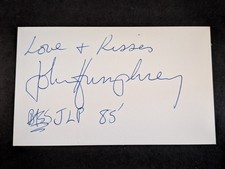 Love + Kisses
John Humphrey
JLP 85'